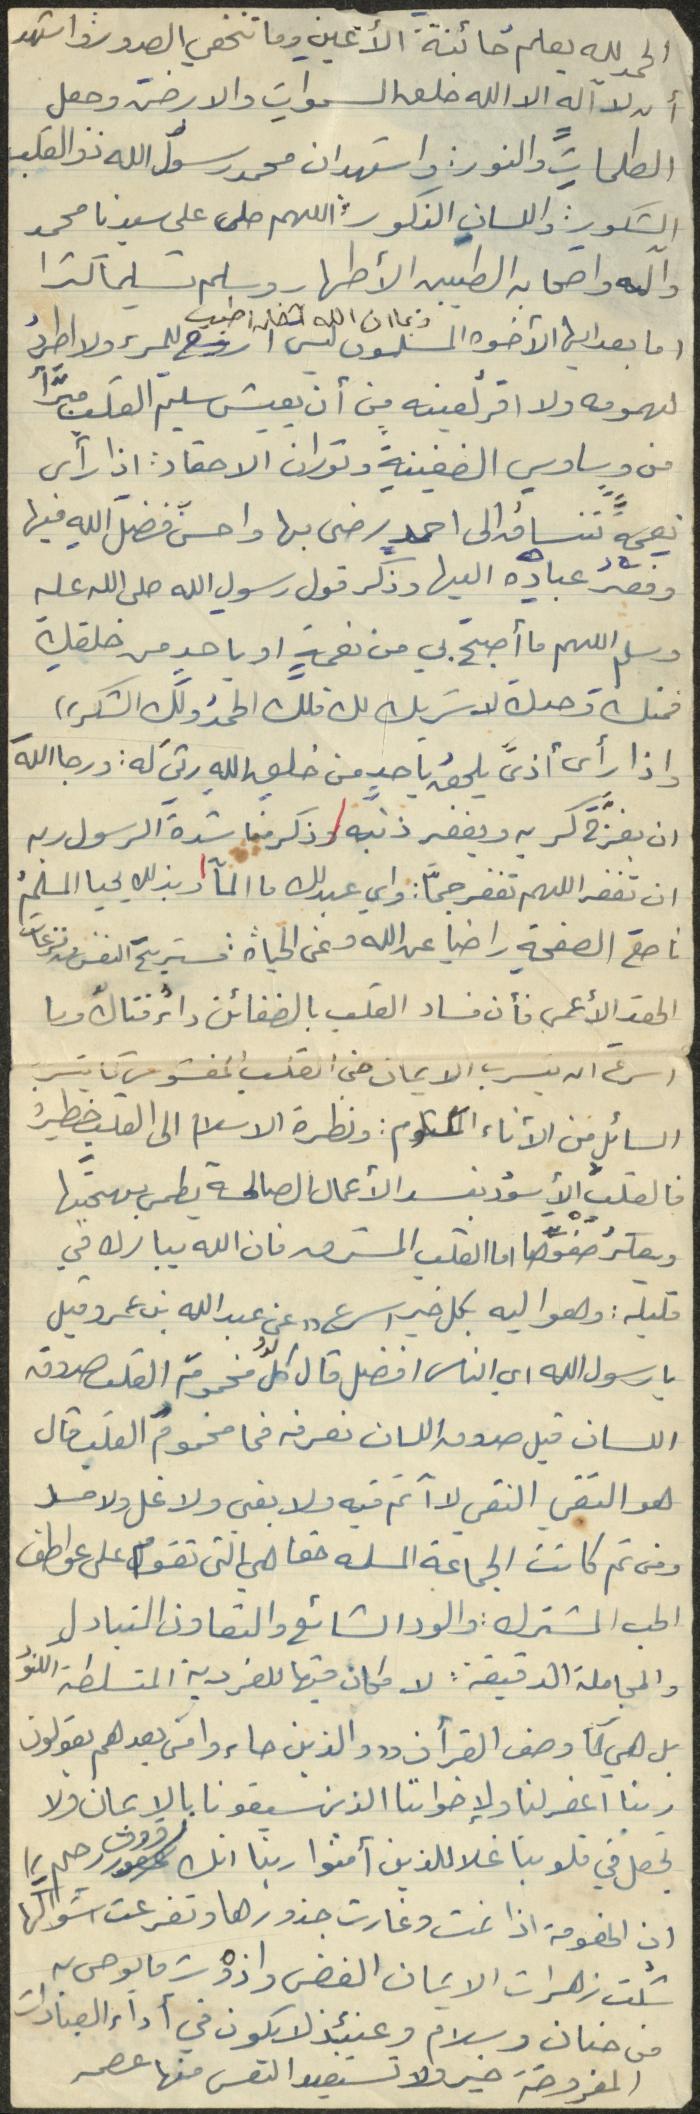 الحمد لله يعلم خائنة الأعين وما تخفي الصدور واشهد
أن لا آله الا الله خلق السموات والارض وجعل
الظلمات والنور: واشهد ان محمد رسول الله ذو القلب
الشكور: واللسان الذكور: اللهم صلى على سيدنا محمد
وآله واصحابه الطيبين الأطهار وسلم تسليما كثيرا
اما بعد ايها الأخوه المسلمون ليس اروح للمرء ولا اطرد
لهمومه ولا اقر لعينه من أن يعيش سليم القلب مبرَّأ
من وساوس الضغينة وثوران الاحقاد: اذا رأى
نعمةً تنساق الى احدٍ رضى بها واحسَّ فضل اللهِ فيها
وفقر عباده اليها وذكر قول رسول الله صلى الله عليه
وسلم اللهم ما أصبح بي من نعمةٍ او باحدٍ من خلقك
فمنك وحدك لا شريك لك فلك الحمدُ ولك الشكر))
واذا رأى أذىً يلحق باحدٍ من خلق الله رثى له: ورجا اللهَ
ان يفرّج كربه ويغفر ذنبه وذكر مناشدة الرسول ربه
ان تغفر اللهم تغفر جمًّا: واي عبدلك ما المآ وبذلك يحيا المسلمُ
ناصع الصفحة راضيا عن الله وعن الحياة: مستريح النفس من نزعات
الحقد الأعمى فأن فساد القلب بالضغائن داء فتاك وما
اسرع ان يتسرب الايمان من القلب المغشوش كما يتسرب
السائل من الأناء المثلوم: ونظرة الاسلام الى القلب خطيرة
فالقلب الأسود يفسد الأعمال الصالحة يطمس بهجتها
ويعكر صفوها اما القلب المشرق فان الله يبارك في
قليله: وهو اليه بكل خير اسرع ((عن عبد الله بن عمرو قيل
يا رسول الله اي الناس افضل قال كل مخموم القلب صدوق
اللسان قيل صدوق اللسان نعرفه فما مخموم القلب قال
هو التقي النقي لا آثم فيه ولا بغي ولا غل ولا حسد
ومن ثم كانت الجماعة المسلمه حقا هي التي تقوم على عواطف
الحب المشترك: والود الشائع والتعاون المتبادل
والمجاملة الدقيقة: لا مكان فيها للفردية المتسلطة
بل هي كما وصف القرأن ((والذين جاءوا من بعدهم يقولون
ربنا اغفر لنا ولإخواننا الذين سبقونا بالايمان ولا
تجعل في قلوبنا غلا للذين أمنوا ربنا انك رؤوف رحيم))
ان الخصومة اذا نمت وغارت جذورها وتفرعت اشواكها
شلت زهرات الايمان الغض واذوت ما يوحى به
من حنان وسلام وعنئذ لا يكون في أداء العبادات
المفروضة خير ولا تستفيد النفس منها عصمه